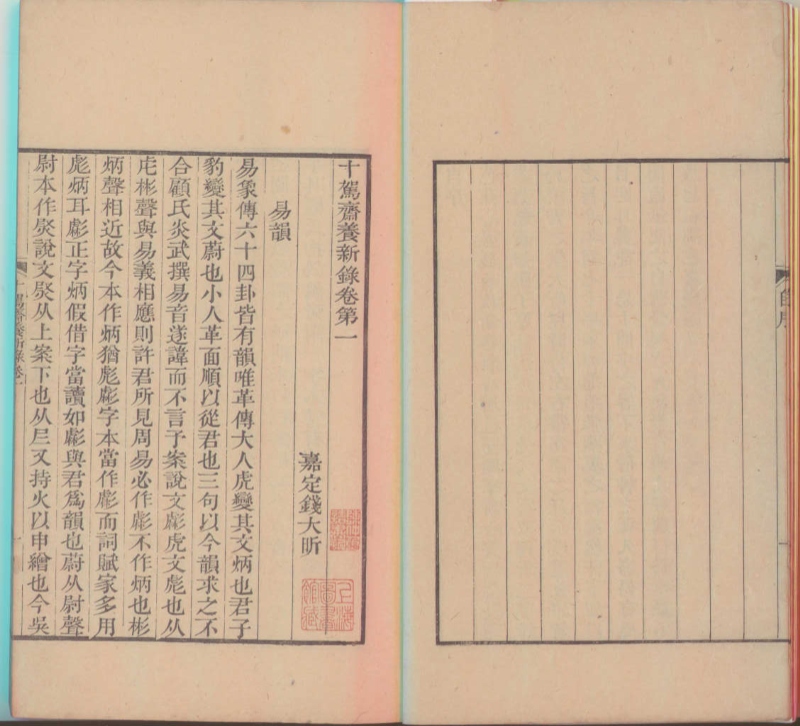 十駕齋養新錄卷第一
嘉定錢大昕
易韻
易象傳六十四卦皆有韻唯革傳大人虎變其文炳也君子
豹變其文蔚也小人革面順以從君也三句以今韻求之不
合顧氏炎武撰易音遂諱而不言予案說文彪虎文彪也从
虍彬聲與易義相應則許君所見周易必作彪不作炳也彬
炳聲相近故今本作炳猶彪彪字本當作彪而詞賦家多用
彪炳耳彪正字炳假借字當讀如彪與君爲韻也蔚从尉聲
尉本作㷉說文㷉从上案下也从𡰥又持火以申繒也今吳